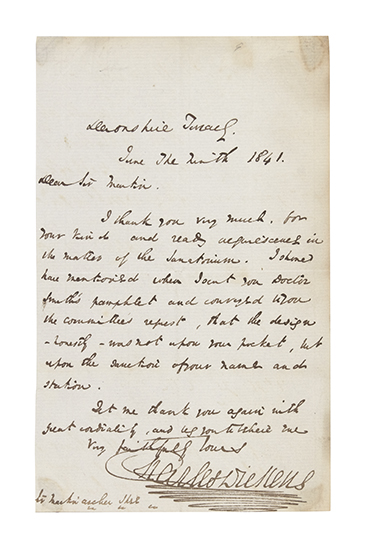 Devonshire Terrace.
June The Ninth 1841.
Dear Sir Martin.
I thank you very much. for
your kind and ready acquiescence in
the matter of the Sanatorium. I should
have mentioned when I sent you Doctor
Smith's pamphlet and conveyed to you
the committee's request, that the design
- honestly - was not upon your pocket, but
upon the sanction of your name and
station.
Let me thank you again with
great cordiality, and beg you to believe me
Very faithfully Yours
Charles Dickens
Sir Martin Archer Shee